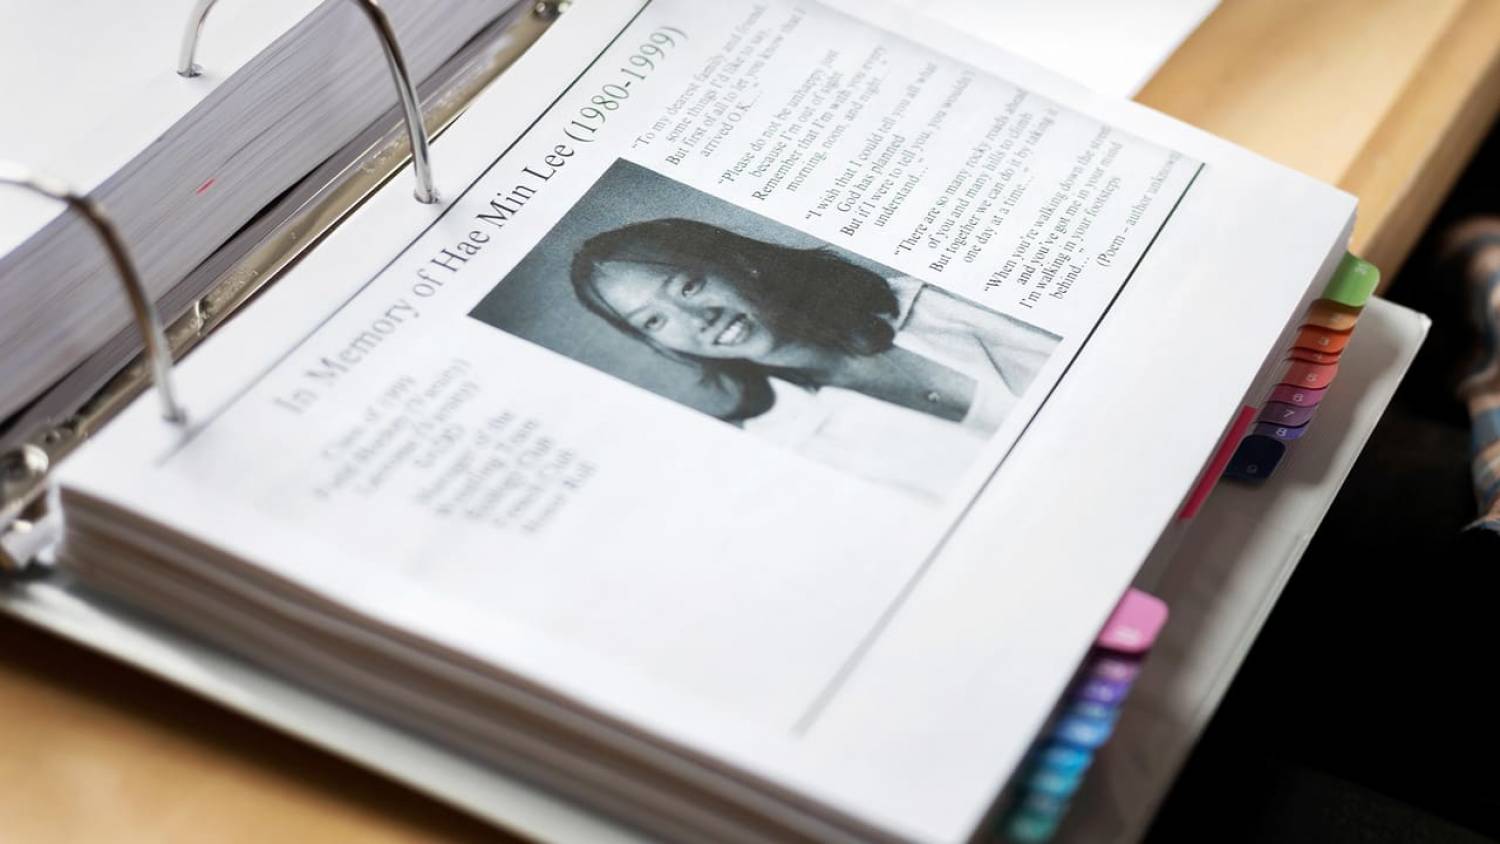 In Memory of Hae Min Lee (1980-1999)
Class of 1999
Field Hockey (Varsity)
Lacrosse (Varsity)
Manager of the
Wrestling Team
Honor Roll
"To my dearest family and friend,
some things I'd like to say.
But first of all to let you know that I
arrived O.K...."
"Please do not be unhappy just
because I'm out of sight
Remember that I'm with you every
morning, noon, and night..."
"I wish that I could tell you all what
God has planned
But if I were to tell you, you wouldn't
understand..."
"There are so many rocky roads ahead
of you and many hills to climb
But together we can do it by taking it
one day at a time..."
"When you're walking down the street
and you've got me in your mind
I'm walking in your footsteps
behind..."
(Poem – author unknown)
3
5
6
7
8
9